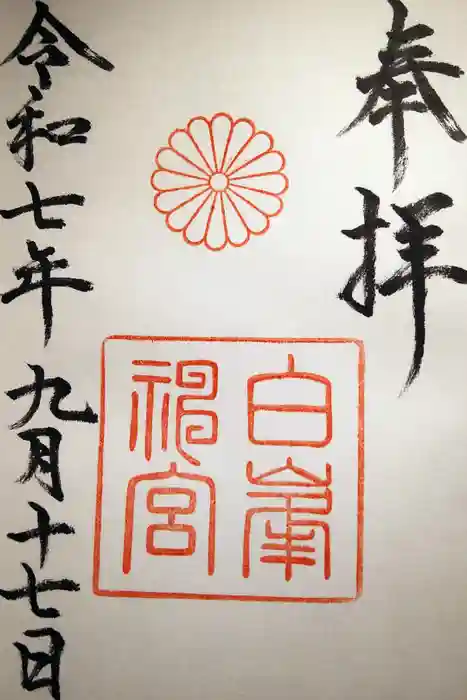 奉拝
白峯
神宮
令和七年九月十七日